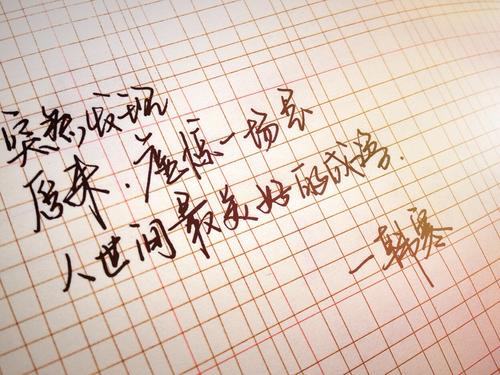 突然发现
原来,虚惊一场是
人世间最美好的成语.
—韩寒